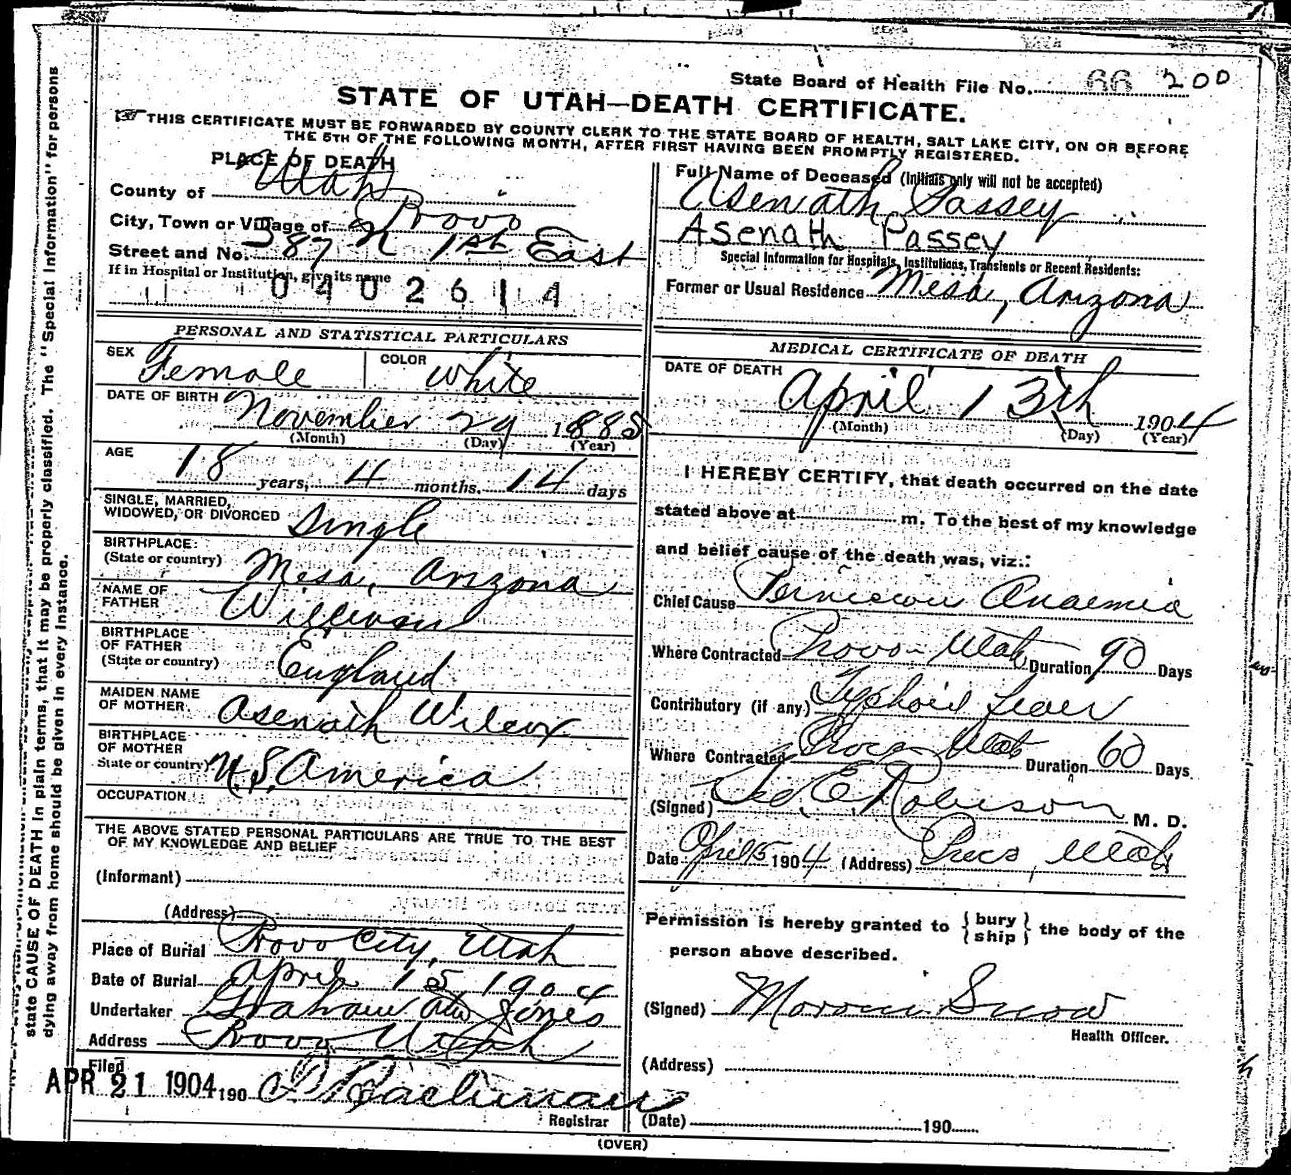 State Board of Health File No. 66 200
STATE OF UTAH—DEATH CERTIFICATE.
THIS CERTIFICATE MUST BE FORWARDED BY COUNTY CLERK TO THE STATE BOARD OF HEALTH, SALT LAKE CITY, ON OR BEFORE
THE 5TH OF THE FOLLOWING MONTH, AFTER FIRST HAVING BEEN PROMPTLY REGISTERED.
PLACE OF DEATH
County of Utah
City, Town or Village of Provo
Street and No. 387 N 1st East
If in Hospital or Institution, give its name
0402614
Full Name of Deceased (Initials only will not be accepted)
Asenath Passey
Asenath Passey
Special Information for Hospitals, Institutions, Transients or Recent Residents:
Former or Usual Residence Mesa, Arizona
PERSONAL AND STATISTICAL PARTICULARS
SEX Female COLOR White
DATE OF BIRTH November 29 1885
(Month) (Day) (Year)
AGE 18 years, 4 months, 14 days
SINGLE, MARRIED,
WIDOWED, OR DIVORCED Single
BIRTHPLACE
(State or country) Mesa, Arizona
NAME OF
FATHER William
BIRTHPLACE
OF FATHER
(State or country) England
MAIDEN NAME
OF MOTHER Asenath Wilcox
BIRTHPLACE
OF MOTHER
State or country) U.S. America
OCCUPATION
THE ABOVE STATED PERSONAL PARTICULARS ARE TRUE TO THE BEST
OF MY KNOWLEDGE AND BELIEF
(Informant)
(Address)
Place of Burial Provo City, Utah
Date of Burial April 15 1904
Undertaker Graham and Jones
Address Provo Utah
Filed
APR 21 1904 190
Registrar
MEDICAL CERTIFICATE OF DEATH
DATE OF DEATH April 13th 1904
(Month) (Day) (Year)
I HEREBY CERTIFY, that death occurred on the date
stated above at m. To the best of my knowledge
and belief cause of the death was, viz.:
Chief Cause Pernicious Anaemia
Where Contracted Provo Utah Duration 90 Days
Contributory (if any) Typhoid Fever
Where Contracted Provo Utah Duration 60 Days
(Signed) Geo E Robison M. D.
Date April 15 1904 (Address) Provo, Utah
Permission is hereby granted to { bury ship } the body of the
person above described.
(Signed) Moroni Snow
Health Officer.
(Address)
(Date) 190
(OVER)
state CAUSE OF DEATH in plain terms, that it may be properly classified. The "Special Information" for persons
dying away from home should be given in every instance.